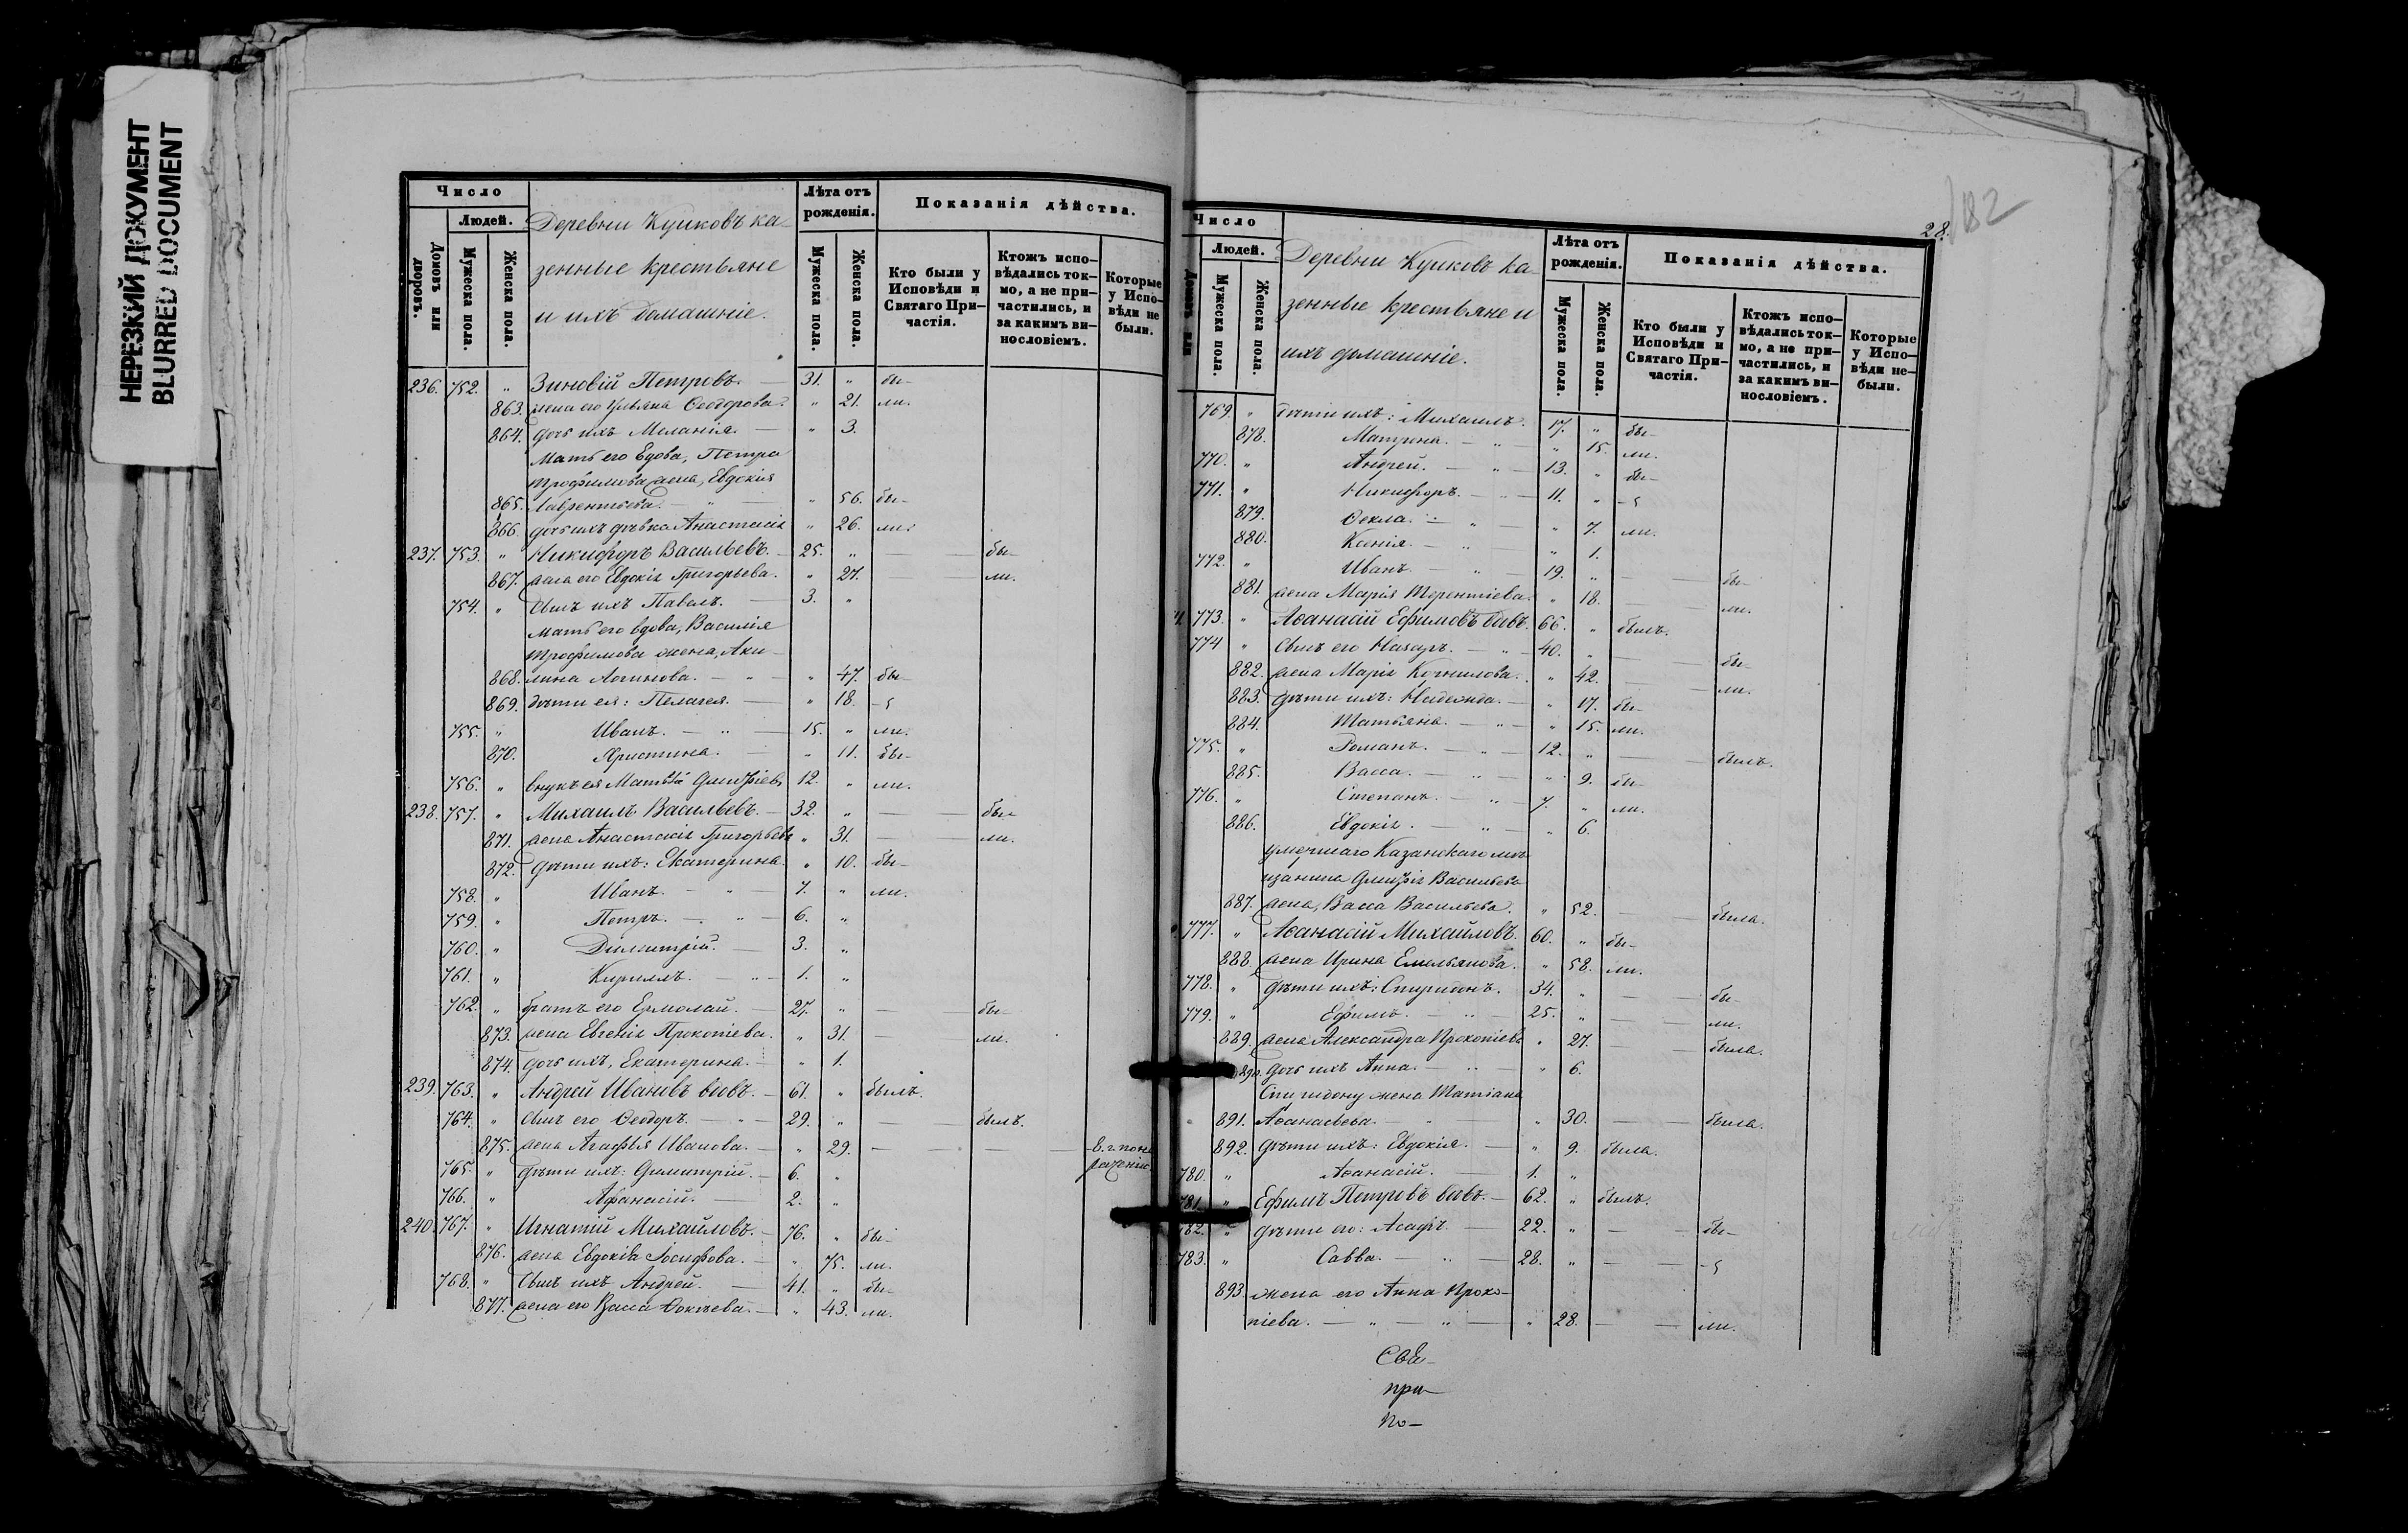 НЕРЕЗКИЙ ДОКУМЕНТ
BLURRED DOCUMENT
Число
Людей.
Домовъ или дворовъ.
Мужеска пола.
Женска пола.
Деревни Кушковъ ка-
зенные крестьяне
и ихъ домашніе.
Лѣта отъ рожденія.
Мужеска пола.
Женска пола.
Показанія дѣйства.
Кто были у Исповѣди и Святаго При-частія.
Ктожъ испо-вѣдались ток-мо, а не при-частились, и за какимъ ви-нословіемъ.
Которые у Испо-вѣди не были.
236. 752. " Зиновій Петровъ. — 31. " бы-
863. жена его Ульяна Ѳеодорова. " 21. ли.
864. дочь ихъ Меланія. — " 3.
Мать его вдова, Петра
Трофимова жена, Евдокія
865. Лаврентьева. — " — " 56. бы-
866. дочь ихъ дѣвка Анастасія " 26. ли.
237. 753. " Никифоръ Васильевъ. — 25. " — — бы-
867. жена его Евдокія Григорьева. " 27. — ли.
754. " сынъ ихъ Павелъ. — 3. "
Мать его вдова, Василія
Трофимова жена, Аки-
868. лина Логинова. — " — " 47. бы-
869. дѣти ея: Пелагея. — " 18. -ѕ
755. " Иванъ. — " — 15. " ли.
870. Христина. — " 11. бы-
756. " внукъ ея Матвѣй Димитріевъ 12. " ли.
238. 757. " Михаилъ Васильевъ. — 32. " — — бы-
871. жена Анастасія Григорьева " 31. — — ли.
872. дѣти ихъ: Екатерина. " 10. бы-
758. " Иванъ. — " — 7. " ли.
759. " Петръ. — " — 6. "
760. " Димитрій. — 3. "
761. " Кириллъ. — " — 1. "
762. " братъ его Ермолай. — 27. " — бы-
873. жена Евгенія Прокопіева. " 31. — ли.
874. дочь ихъ, Екатерина. — " 1.
239. 763. " Андрей Ивановъ вдовъ. — 61. " былъ.
764. " сынъ его Ѳеодоръ. — " — 29. " — — былъ.
875. жена Агафья Иванова. — " 29. — — —
765. " дѣти ихъ: Димитрій. — 6. "
766. " Афанасій. — 2. "
240. 767. " Игнатій Михайловъ. — 76. " бы-
876. жена Евдокія Іосифова. — " 75. ли.
768. " сынъ ихъ Андрей. — 41. " бы-
877. жена его Васса — " 43. ли.
182
28.
Число
Людей.
Домовъ или
Мужеска пола.
Женска пола.
Деревни Кушковъ ка-
зенные крестьяне и
ихъ домашніе.
Лѣта отъ рожденія.
Мужеска пола.
Женска пола.
Показанія дѣйства.
Кто были у Исповѣди и Святаго При-частія.
Ктожъ испо-вѣдались ток-мо, а не при-частились, и за какимъ ви-нословіемъ.
Которые у Испо-вѣди не-были.
769. " дѣти ихъ: Михаилъ. 17. " бы-
878. Матрона. — " " 15. ли.
770. " Андрей. — " — 13. " бы-
771. " Никифоръ. — " — 11. " -ѕ
879. Ѳекла. — " — " 7. ли.
880. Ксенія. — " — " 1.
772. " Иванъ. — " — 19. " — — бы-
881. жена Марія Терентіева. " 18. — ли.
773. " Аѳанасій Ефимовъ вдовъ. 66. " былъ.
774 " сынъ его Назаръ. — " — 40. " — бы-
882. жена Марія Корнилова. " 42. — ли.
883. дѣти ихъ: Надежда. — " 17. бы-
884. Татьяна. — " — " 15. ли.
775. " Романъ. — " — 12. " — — былъ.
885. Васса. — " — " 9. бы-
776. " Степанъ. — " — 7. " ли.
886. Евдокія. — " — " 6.
умершаго Казанскаго мѣ-
щанина Димитрія Васильева
887. жена, Васса Васильева. " 52. — — была.
777. " Аѳанасій Михайловъ. 60. " бы-
888. жена Ирина Емельянова. " 58. ли.
778. " дѣти ихъ: Спиридонъ. 34. " — — бы-
779. " Ефимъ. — " — 25. " — — ли.
889. жена Александра Прокопіева " 27. — — была.
890. дочь ихъ Анна. — " — " 6.
Спиридону жена Татіана
891. Аѳанасьева. — " — " 30. — — была.
892. дѣти ихъ: Евдокія. — " 9. была.
780. " Аѳанасій. — 1. "
781. " Ефимъ Петровъ вдовъ. — 62. " былъ.
782. " дѣти его: Асафъ. — 22. " — — бы-
783. " Савва. — " — 28. " — — -ѕ
893. жена его Анна Проко-
піева. — " — " — " 28. — — ли.
Свя-
при-
по-